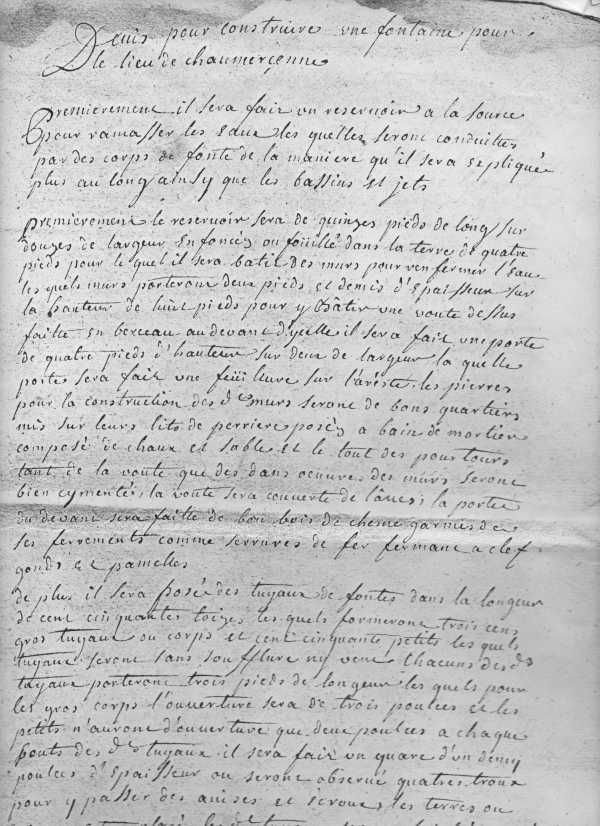 Devis pour construire une fontaine pour
le lieu de chaumercenne
Premierement il sera fait un reservoir a la source
pour ramasser les eaux les quelles seront conduittes
par des corps de fonte de la maniere qu'il sera expliqué
plus au long ainsy que les bassins et jets
premierement le reservoir sera de quinzes pieds de long sur
douzes de largeur enfoncés ou foüillé dans la terre de quatre
pieds pour le quel il sera batit des murs pour renfermer l'eau
les quels murs porteront deux pieds et demis d'Epaisseur sur
la hauteur de huit pieds pour y Batir une voute dessus
faitte en berceau au devant d'ycelle il sera fait une porte
de quatre pieds d'hauteur sur deux de largeur la quelle
porte sera fait une feüillure sur l'aréste les pierres
pour la construction des d murs seront de bons quartiers
mis sur leurs lits de perriere posés a bain de mortier
composé de chaux et sable et le tout des pourtours
tant de la voute que des dans oeuvre des murs seront
bien cymentés la voute sera couverte de lâves la porte
du devant sera faitte de bon bois de chene garnies de
ses ferrements comme serrures de fer fermant a clef
gonds et pamelles
de plus il sera posée des tuyaux de fontes dans la longeur
de cent cinquantes toizes les quels formeront trois cens
gros tuyaux ou corps et cent cinquante petits les quels
tuyaux seront sans soufflure ny vent chacuns des ds
tuyaux porteront trois pieds de longeur les quels pour
les gros corps l'ouverture sera de trois poulces et les
petits n'auront d'ouverture que deux poulces a chaque
bouts des d tuyaux il sera fait un quare d'un demy
poulces d'Epaisseur ou seront observé quatres troux
pour y passer des et écroux les terres ou